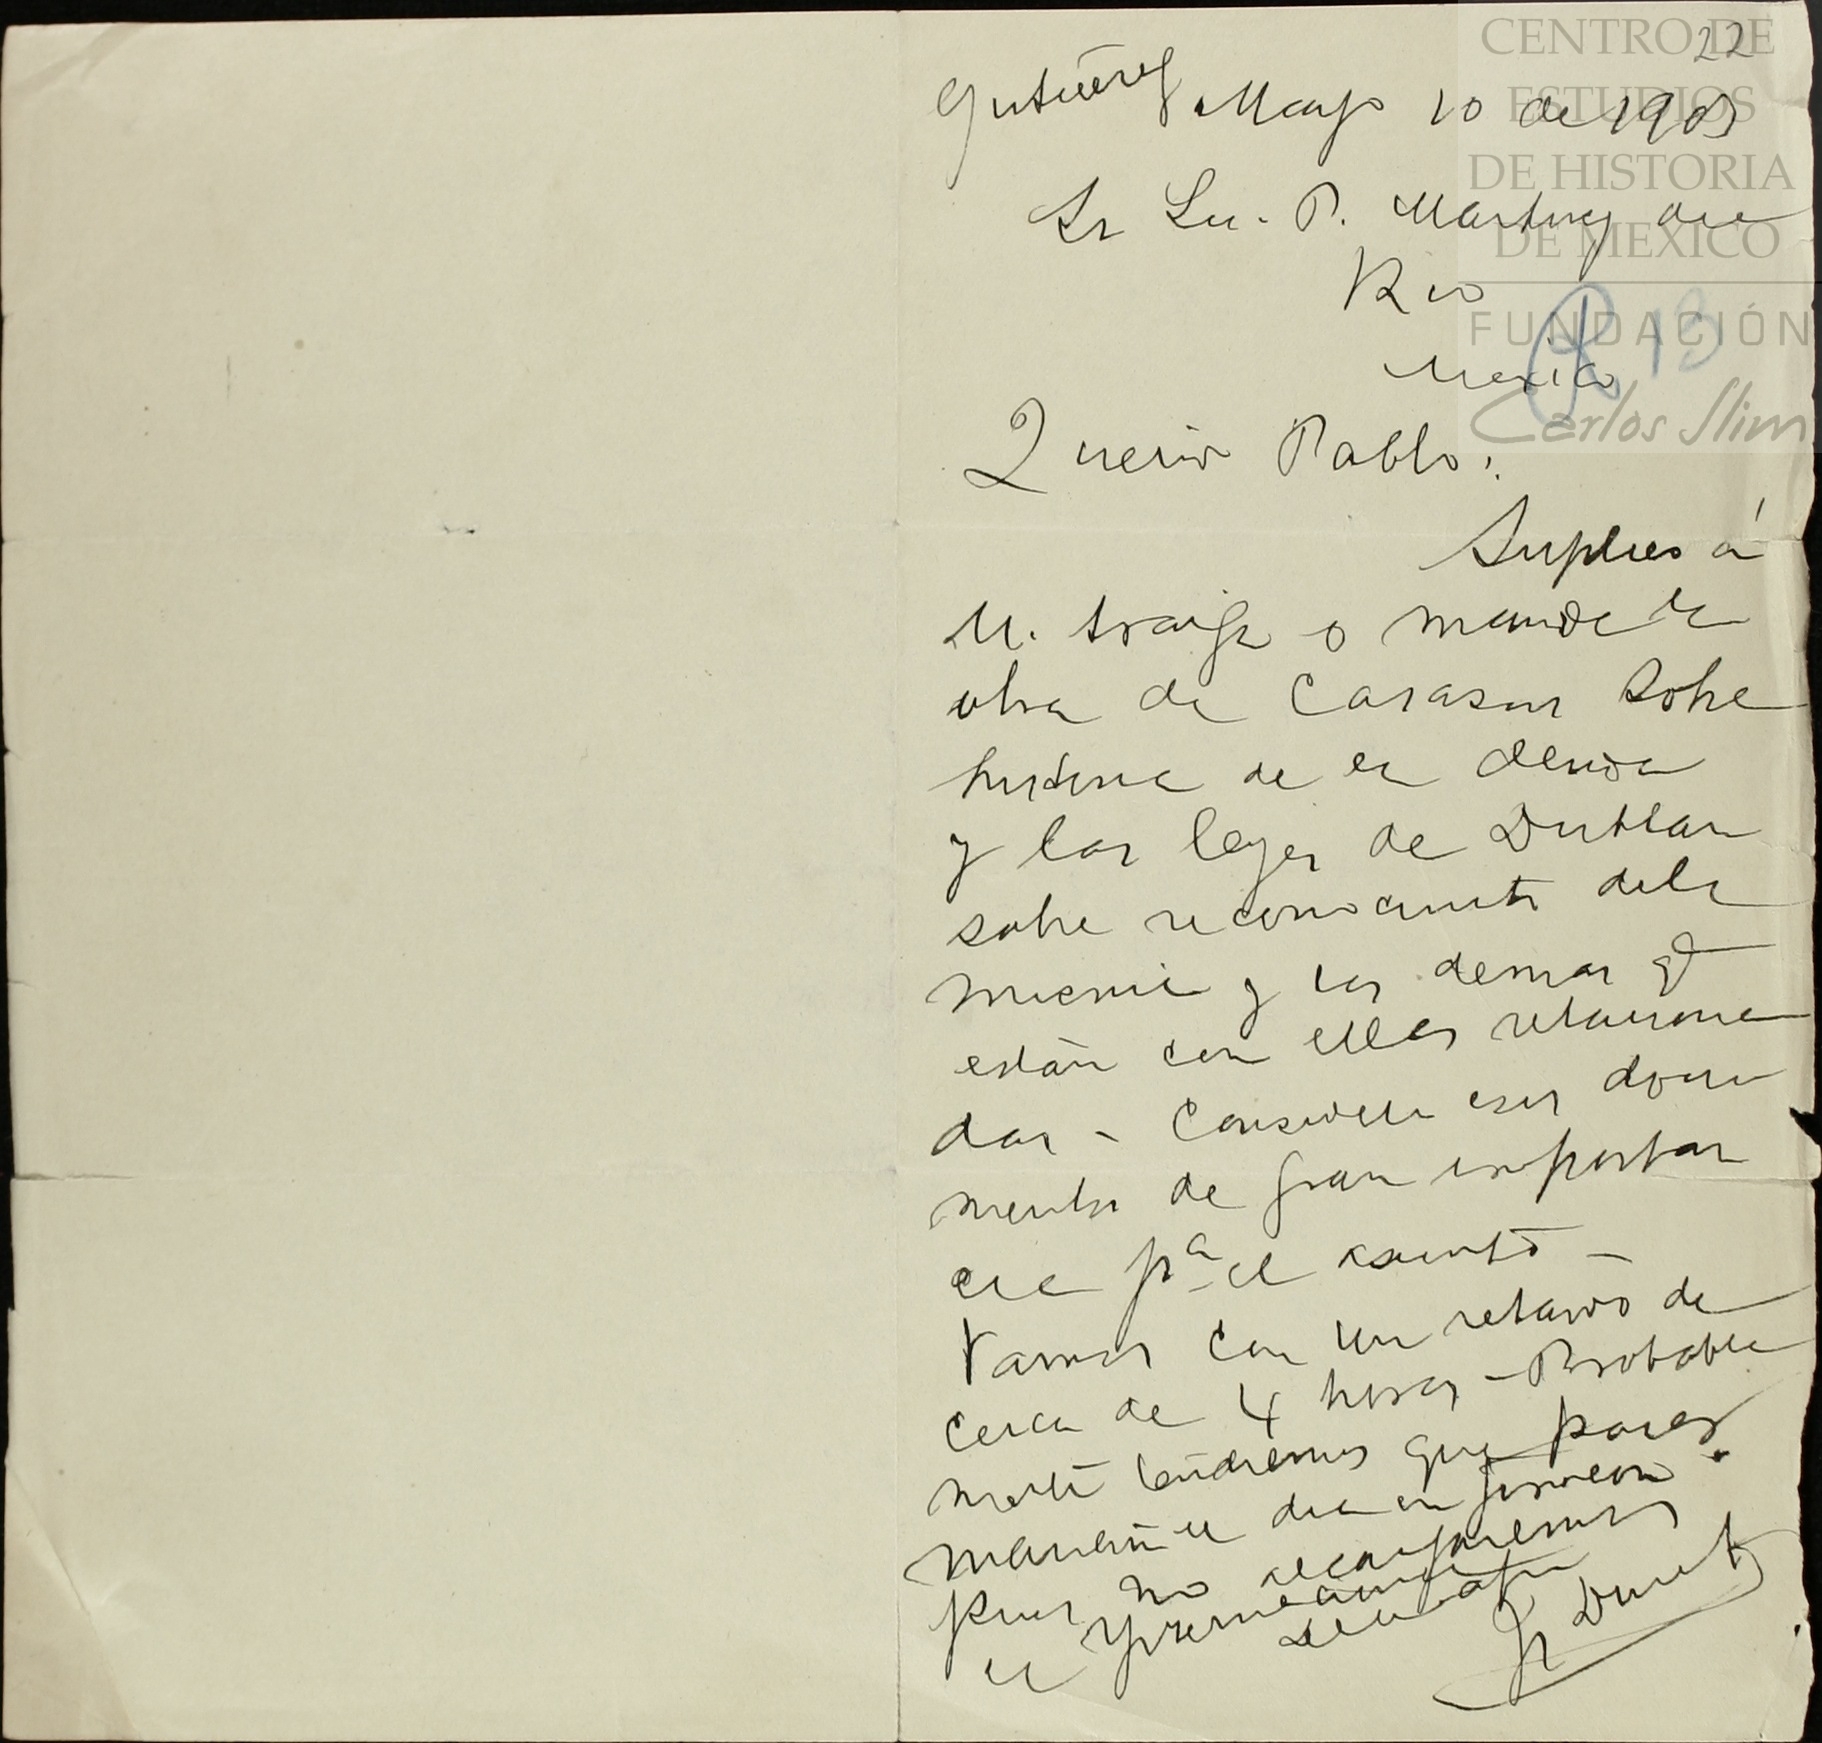 22
Gutierrez Mayo 10 de 1903
Sr Lic. P. Martinez del
Rio
Mexico
R 13
Querido Pablo:
Suplico á
U. traiga o mande la
obra de Casasus sobre
historia de la deuda
y las leyes de Dublan
sobre reconocimto dela
misma y las demas q̃
están con ellas relaciona
das - Considero esos docu
mentos de gran importan
cia pª el asunto -
Vamos con un retardo de
cerca de 4 horas - Probable
mente tendremos que pasar
mañana el dia en
pues no alcanzaremos
el
CENTRO DE
ESTUDIOS
DE HISTORIA
DE MEXICO
FUNDACIÓN
Carlos Slim